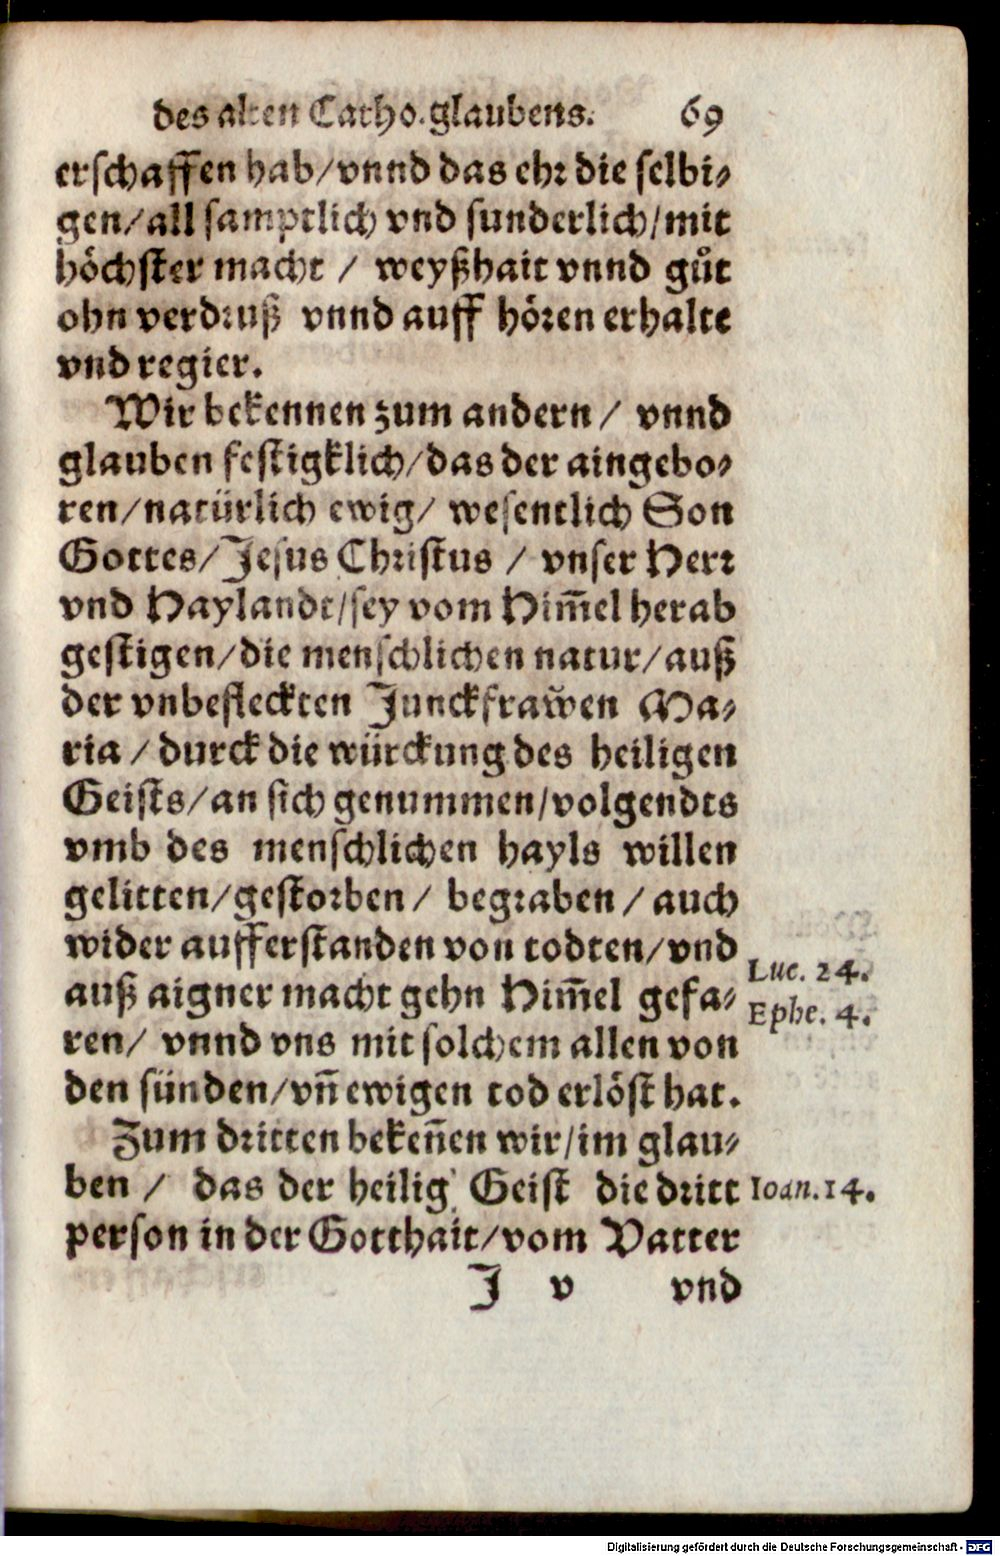 des alten Catho. glaubens. 69
erschaffen hab/vnnd das ehr die selbi⸗
gen/all samptlich vnd sunderlich/mit
höchster macht / weyßhait vnnd gůt
ohn verdruß vnnd auff hören erhalte
vnd regier.
Wir bekennen zum andern / vnnd
glauben festigklich/das der aingebo⸗
ren/natürlich ewig/ wesentlich Son
Gottes/Jesus Christus / vnser Herr
vnd Haylandt/sey vom Him̄el herab
gestigen/die menschlichen natur/auß
der vnbefleckten Junckfraw̆en Ma⸗
ria / durck die würckung des heiligen
Geists/an sich genummen/volgendts
vmb des menschlichen hayls willen
gelitten/gestorben/ begraben / auch
wider aufferstanden von todten/vnd
auß aigner macht gehn Him̄el gefa⸗
ren/ vnnd vns mit solchem allen von
den sünden/vn̄ ewigen tod erlöst hat.
Luc. 24.
Ephe. 4.
Zum dritten beken̄en wir/im glau⸗
ben / das der heilig Geist die dritt
person in der Gotthait/vom Vatter
Ioan. 14.
J v vnd
Digitalisierung gefördert durch die Deutsche Forschungsgemeinschaft - DFG